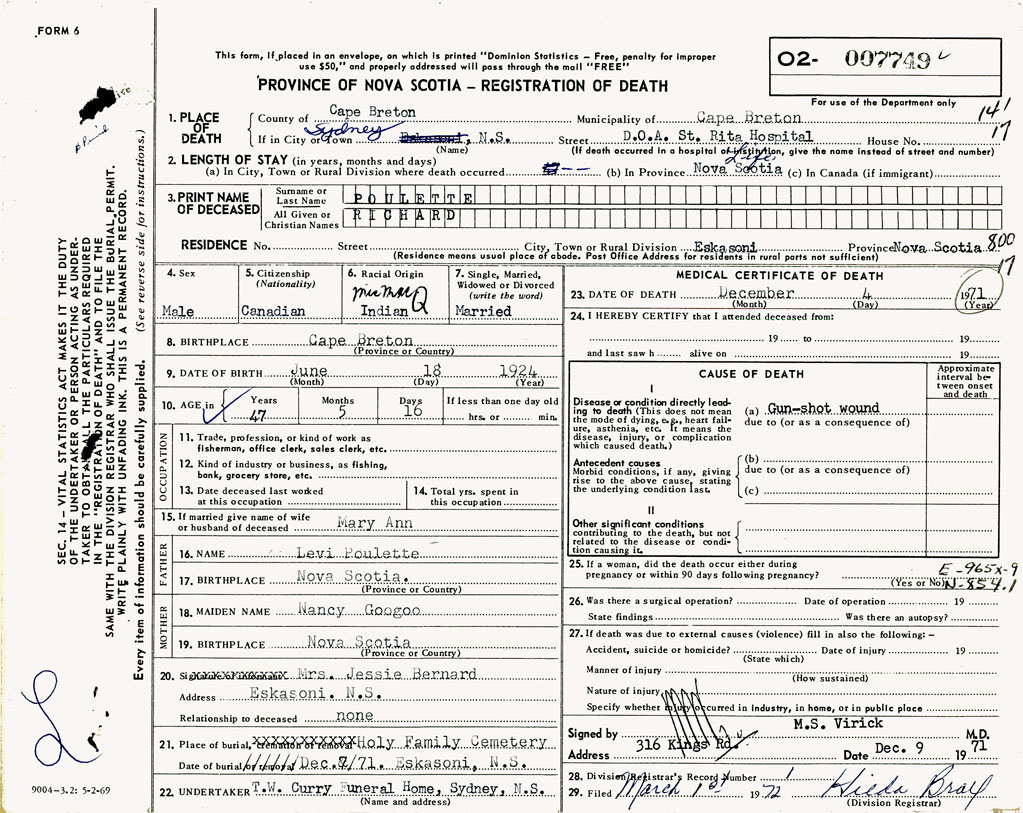 FORM 6
This form, if placed in an envelope, on which is printed "Dominion Statistics – Free, penalty for improper
use $50," and properly addressed will pass through the mail "FREE"
PROVINCE OF NOVA SCOTIA – REGISTRATION OF DEATH
O2- 007749
For use of the Department only
141
17
1. PLACE OF DEATH
County of Cape Breton Municipality of Cape Breton
If in City or Town Sydney Eskasoni, N.S. Street D.O.A. St. Rita Hospital House No.
(Name) (If death occurred in a hospital or institution, give the name instead of street and number)
2. LENGTH OF STAY (in years, months and days) Life
(a) In City, Town or Rural Division where death occurred -- (b) In Province Nova Scotia (c) In Canada (if immigrant)
3. PRINT NAME OF DECEASED
Surname or Last Name POULETTE
All Given or Christian Names RICHARD
RESIDENCE No. Street City, Town or Rural Division Eskasoni Province Nova Scotia 800
(Residence means usual place of abode. Post Office Address for residents in rural parts not sufficient) 17
4. Sex
Male
5. Citizenship
(Nationality)
Canadian
6. Racial Origin
Mic Mac
Indian
7. Single, Married,
Widowed or Divorced
(write the word)
Married
8. BIRTHPLACE Cape Breton
(Province or Country)
9. DATE OF BIRTH June 18 1924
(Month) (Day) (Year)
10. AGE in Years Months Days If less than one day old
47 5 16 hrs. or min.
OCCUPATION
11. Trade, profession, or kind of work as
fisherman, office clerk, sales clerk, etc.
12. Kind of industry or business, as fishing,
bank, grocery store, etc.
13. Date deceased last worked
at this occupation
14. Total yrs. spent in
this occupation
15. If married give name of wife
or husband of deceased Mary Ann
FATHER
16. NAME Levi Poulette
17. BIRTHPLACE Nova Scotia.
(Province or Country)
MOTHER
18. MAIDEN NAME Nancy Googoo
19. BIRTHPLACE Nova Scotia
(Province or Country)
20. Signature of informant Mrs. Jessie Bernard
Address Eskasoni. N.S.
Relationship to deceased none
21. Place of burial, cremation or removal Holy Family Cemetery
Date of burial or removal Dec.7/71. Eskasoni, N.S.
22. UNDERTAKER T.W. Curry Funeral Home, Sydney, N.S.
(Name and address)
MEDICAL CERTIFICATE OF DEATH
23. DATE OF DEATH December 4 1971
(Month) (Day) (Year)
24. I HEREBY CERTIFY that I attended deceased from:
19 to 19
and last saw h alive on 19
CAUSE OF DEATH
Approximate
interval be-
tween onset
and death
I
Disease or condition directly lead-
ing to death (This does not mean
the mode of dying, e.g., heart fail-
ure, asthenia, etc. It means the
disease, injury, or complication
which caused death.)
(a) Gun-shot wound
due to (or as a consequence of)
Antecedent causes
Morbid conditions, if any, giving
rise to the above cause, stating
the underlying condition last.
(b)
due to (or as a consequence of)
(c)
II
Other significant conditions
contributing to the death, but not
related to the disease or condi-
tion causing it.
25. If a woman, did the death occur either during
pregnancy or within 90 days following pregnancy?
(Yes or No)
E-965X-9
N-854.1
26. Was there a surgical operation? Date of operation 19
State findings Was there an autopsy?
27. If death was due to external causes (violence) fill in also the following: –
Accident, suicide or homicide? Date of injury 19
(State which)
Manner of injury
(How sustained)
Nature of injury
Specify whether injury occurred in industry, in home, or in public place
Signed by M.S. Virick M.D.
Address 316 Kings Rd. Date Dec. 9 1971
28. Division Registrar's Record Number 1
29. Filed March 1st 1972
(Division Registrar)
SEC. 14 – VITAL STATISTICS ACT MAKES IT THE DUTY
OF THE UNDERTAKER OR PERSON ACTING AS UNDER-
TAKER TO OBTAIN ALL THE PARTICULARS REQUIRED
IN THE "REGISTRATION OF DEATH" AND TO FILE THE
SAME WITH THE DIVISION REGISTRAR WHO SHALL ISSUE THE BURIAL PERMIT.
WRITE PLAINLY WITH UNFADING INK. THIS IS A PERMANENT RECORD.
Every item of information should be carefully supplied. (See reverse side for instructions.)
9004-3.2: 5-2-69